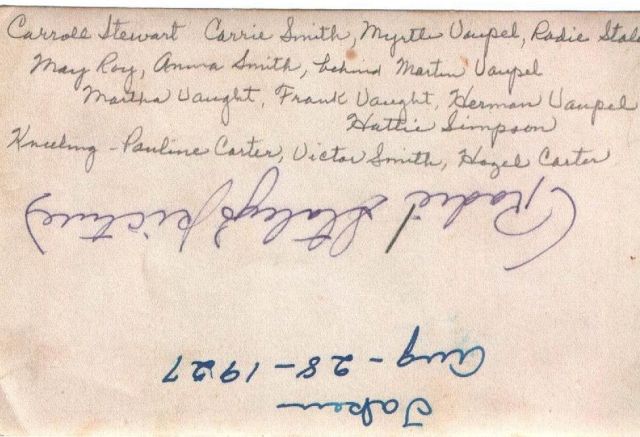 Carroll Stewart Carrie Smith, Myrtle Vaupel, Radie Stal
May Roy, Anna Smith, behind Martin Vaupel
Martha Vaught, Frank Vaught, Herman Vaupel
Hattie Simpson
Kneeling - Pauline Carter, Victor Smith, Hazel Carter
(Radie Staley's picture)
Taken
Aug - 28 - 1927